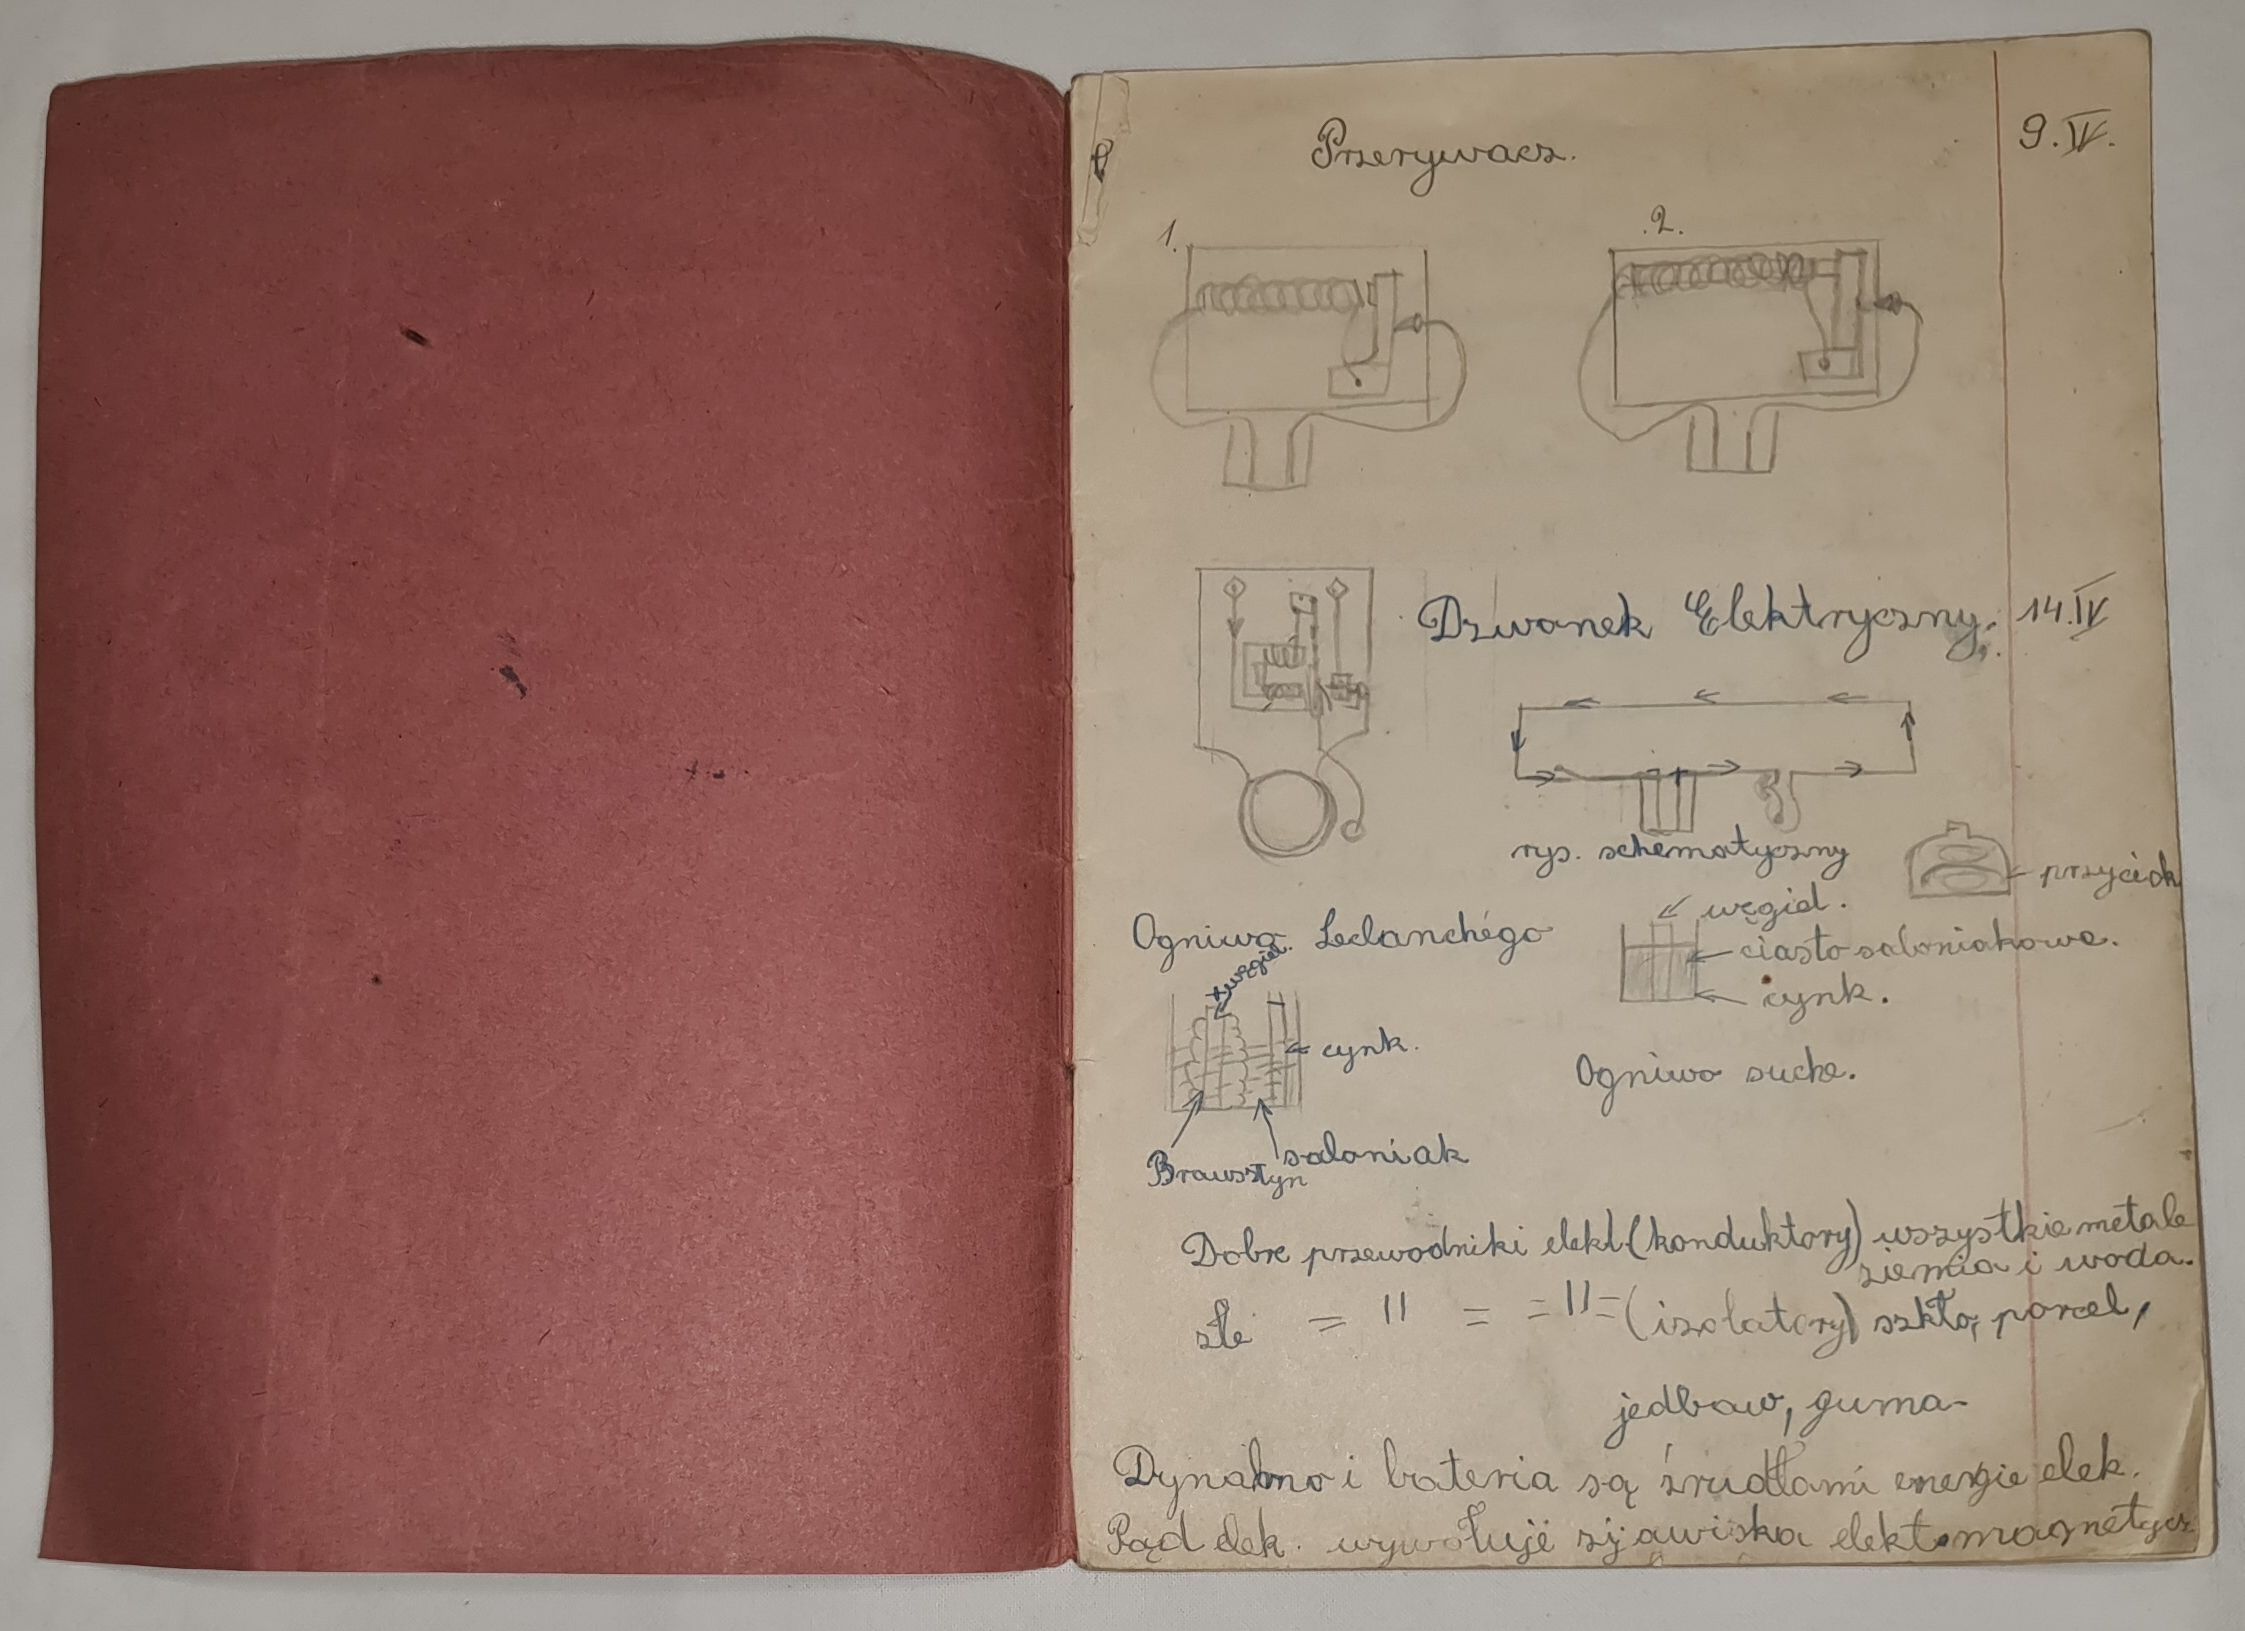 Przerywacz.
9.IV.
1.
2.
Dzwonek Elektryczny.
14.IV
rys. schematyczny
przycisk
Ogniwo Leclanchégo
węgiel.
węgiel.
ciasto salmiakowe.
cynk.
cynk.
Ogniwo suche.
Braunsztyn
salmiak
Dobre przewodniki elekt. (konduktory) wszystkie metale
ziemia i woda.
złe = " = = " = (izolatory) szkło, porcel,
jedbaw, guma-
Dynamo i bateria są źrudłami energie elek.
Prąd elek. wywołuje zjawiska elektomagnetycz